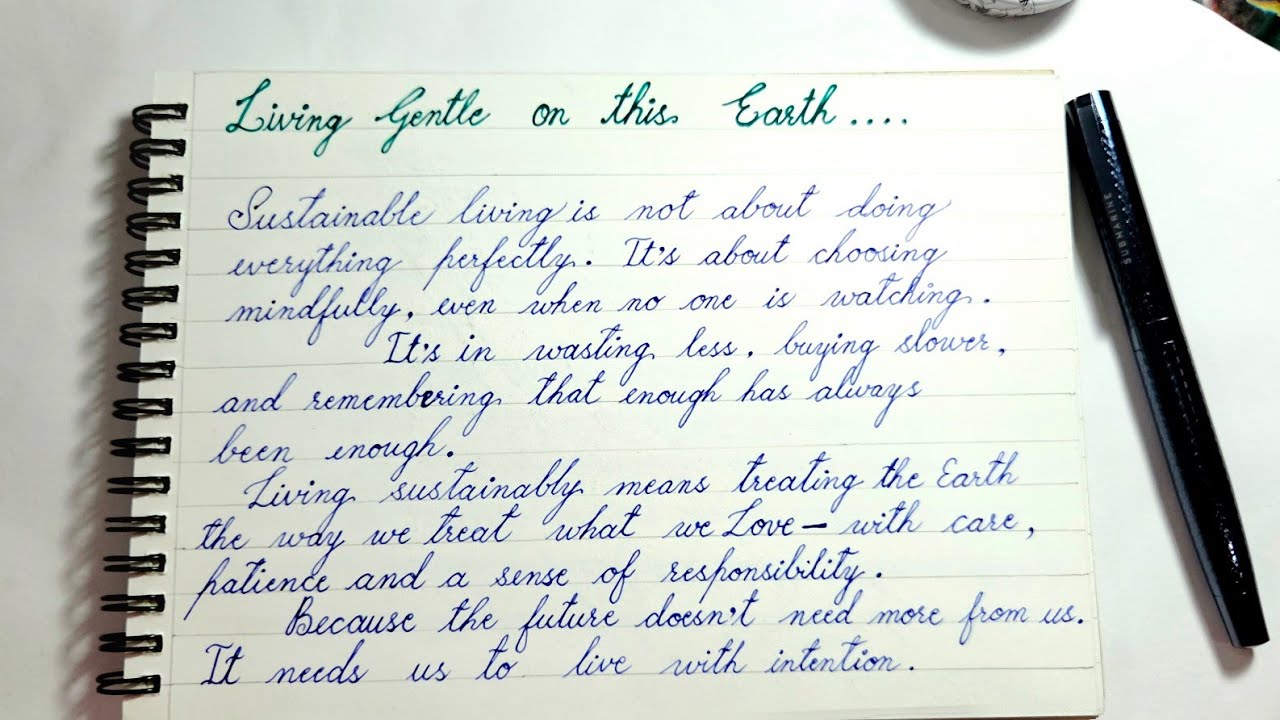 Living Gentle on this Earth....
Sustainable living is not about doing
everything perfectly. It's about choosing
mindfully, even when no one is watching.
It's in wasting less, buying slower,
and remembering that enough has always
been enough.
Living sustainably means treating the Earth
the way we treat what we Love – with care,
patience and a sense of responsibility.
Because the future doesn't need more from us.
It needs us to live with intention.
SUBMARINE